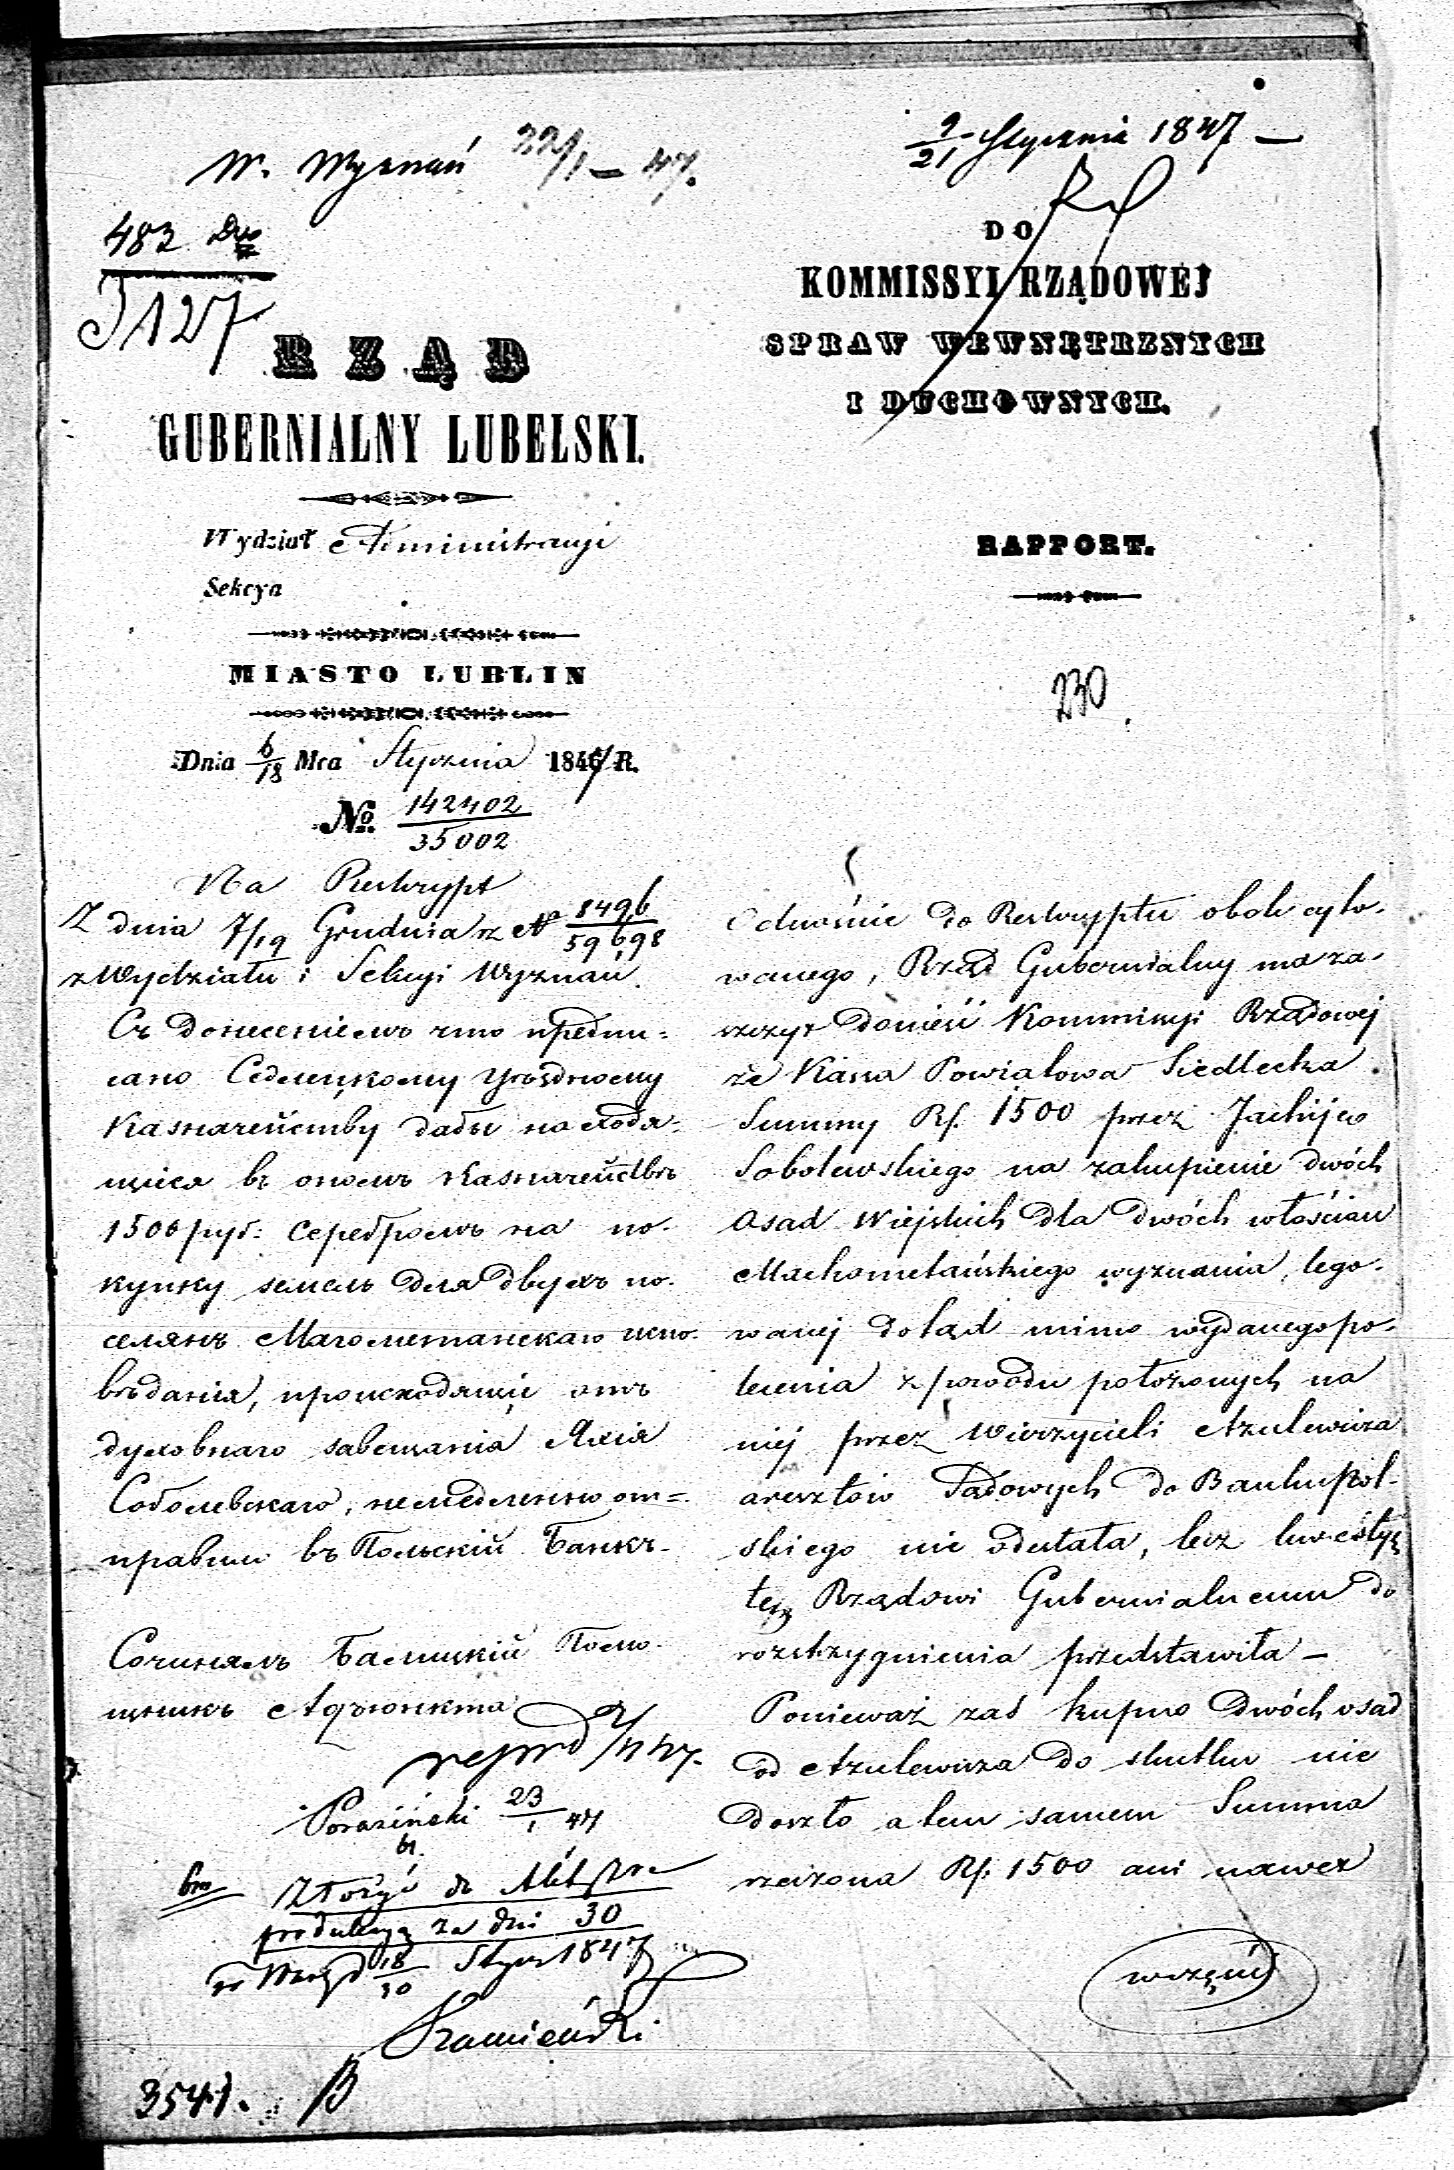 W. Wyznań 22/1 – 47.
9/21 Stycznia 1847 —
483
3127
RZĄD
GUBERNIALNY LUBELSKI.
Wydział Administracyi
Sekcya
MIASTO LUBLIN
Dnia 6/18 Mca Stycznia 1847 R.
No. 142402/35002
Na Reskrypt
Z dnia 7/19 Grudnia r.z. No 8496/59698
z Wydziału i Sekcyi Wyznań.
Съ донесеніемъ что предпи-
сано Седлецкому Уѣздному
Казначейству дабы находя-
щіеся въ ономъ Казначействѣ
1500 руб: серебромъ на по-
купку земель для двухъ по-
селянъ Магометанскаго испо-
вѣданія, происходящіе отъ
духовнаго завещанія Яхія
Соболевскаго, немедленно от-
правили въ Польскій Банкъ.
Сочинялъ Балицкій Помо-
щникъ Адъюнкта
Poraziński 23/1 47
Złożyć do
produkcyą za dni 30
18/30 Stycz 1847
3541.
DO
KOMMISSYI RZĄDOWEJ
SPRAW WEWNĘTRZNYCH
I DUCHOWNYCH.
RAPPORT.
230
Odnośnie do Reskryptu obok cyto-
wanego, Rząd Gubernialny ma za-
szczyt donieść Kommissyi Rządowej
że Kassa Powiatowa Siedlecka
Summy Rs. 1500 przez Jachijea
Sobolewskiego na zakupienie dwóch
Osad Wiejskich dla dwóch włościan
Machometańskiego wyznania, lego-
wanej dotąd mimo wydanego po-
lecenia z powodu położonych na
niej przez Wierzycieli Azulewicza
aresztów Sądowych do Banku Pol-
skiego nie odesłała, lecz kwestyę
tę Rządowi Gubernialnemu do
rozstrzygnienia przedstawiła —
Ponieważ zaś kupno dwóch osad
od Azulewicza do skutku nie
doszło a tem samem Summa
rzeczona Rs. 1500 ani nawet
w części